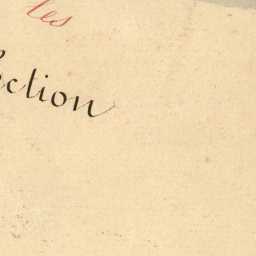 les
ection